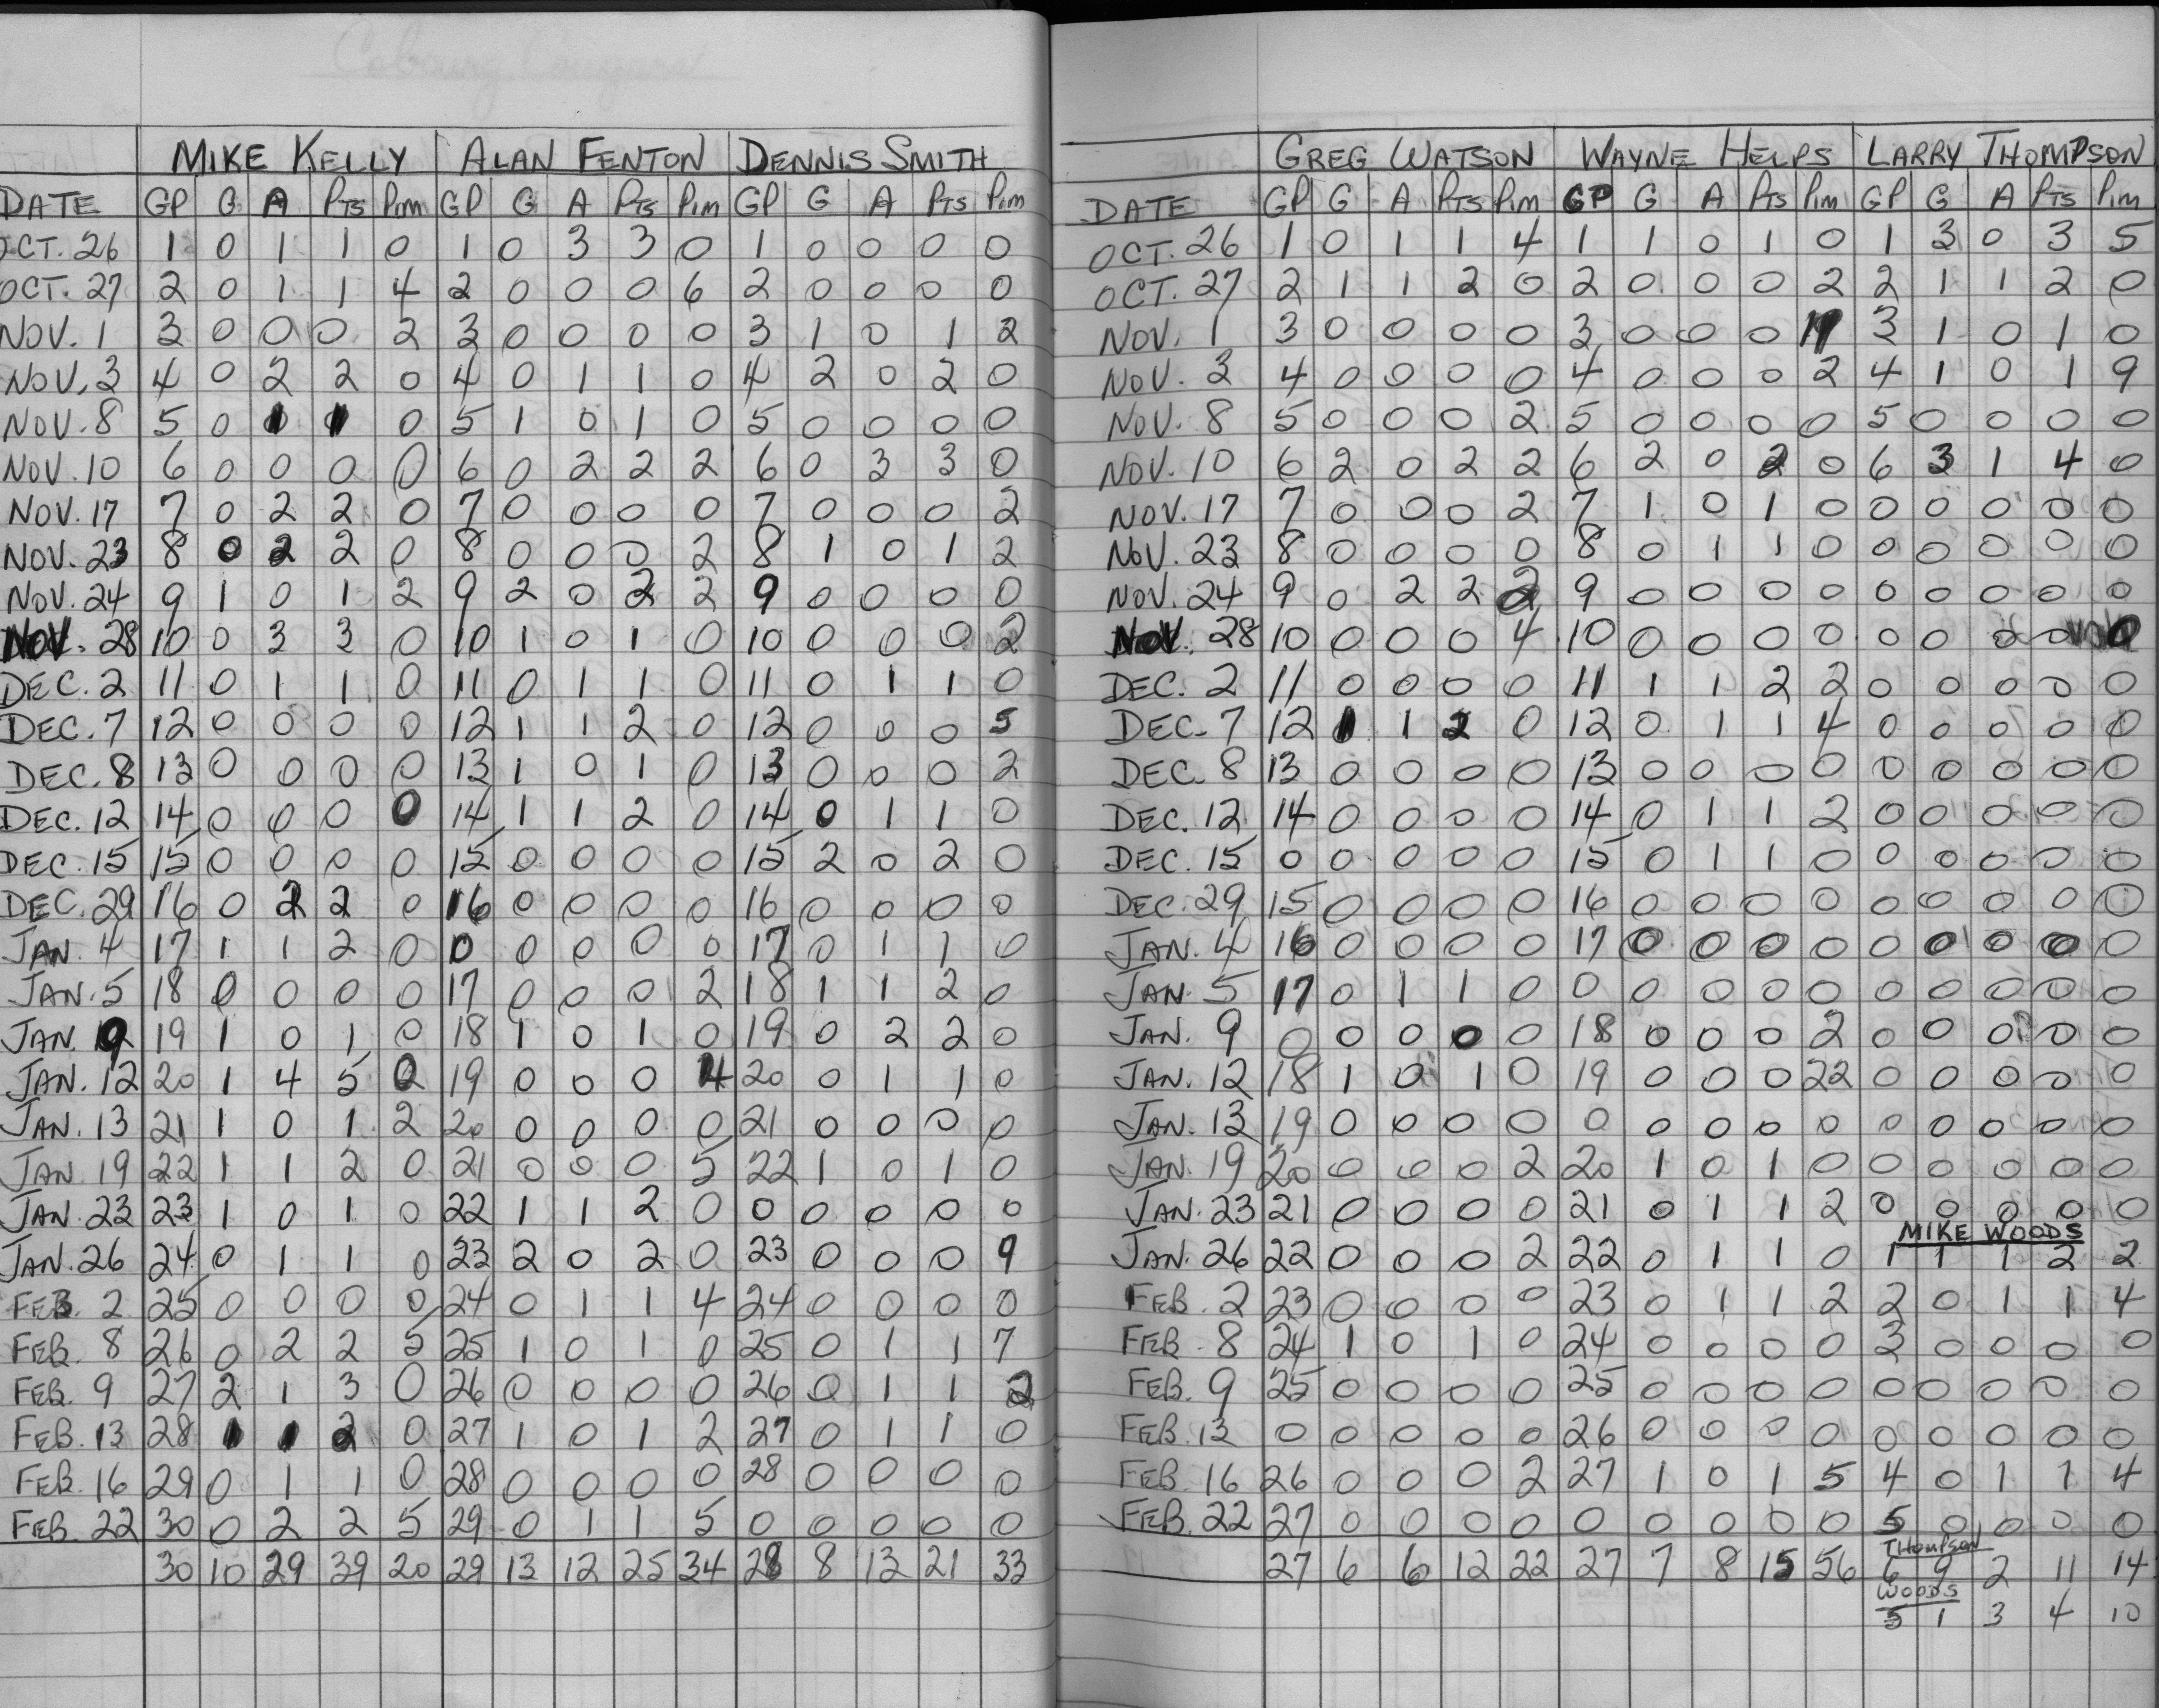 MIKE KELLY ALAN FENTON DENNIS SMITH
DATE GP G A PTS PIM GP G A PTS PIM GP G A PTS PIM
OCT. 26 1 0 1 1 0 1 0 3 3 0 1 0 0 0 0
OCT. 27 2 0 1 1 4 2 0 0 0 6 2 0 0 0 0
NOV. 1 3 0 0 0 2 3 0 0 0 0 3 1 0 1 2
NOV. 3 4 0 2 2 0 4 0 1 1 0 4 2 0 2 0
NOV. 8 5 0 1 1 0 5 1 0 1 0 5 0 0 0 0
NOV. 10 6 0 0 0 0 6 0 2 2 2 6 0 3 3 0
NOV. 17 7 0 2 2 0 7 0 0 0 0 7 0 0 0 2
NOV. 23 8 0 2 2 0 8 0 0 0 2 8 1 0 1 2
NOV. 24 9 1 0 1 2 9 2 0 2 2 9 0 0 0 0
NOV. 28 10 0 3 3 0 10 1 0 1 0 10 0 0 0 2
DEC. 2 11 0 1 1 0 11 0 1 1 0 11 0 1 1 0
DEC. 7 12 0 0 0 0 12 1 1 2 0 12 0 0 0 5
DEC. 8 13 0 0 0 0 13 1 0 1 0 13 0 0 0 2
DEC. 12 14 0 0 0 0 14 1 1 2 0 14 0 1 1 0
DEC. 15 15 0 0 0 0 15 0 0 0 0 15 2 0 2 0
DEC. 29 16 0 2 2 0 16 0 0 0 0 16 0 0 0 0
JAN. 4 17 1 1 2 0 0 0 0 0 0 17 0 1 1 0
JAN. 5 18 0 0 0 0 17 0 0 0 2 18 1 1 2 0
JAN. 9 19 1 0 1 0 18 1 0 1 0 19 0 2 2 0
JAN. 12 20 1 4 5 0 19 0 0 0 4 20 0 1 1 0
JAN. 13 21 1 0 1 2 20 0 0 0 0 21 0 0 0 0
JAN. 19 22 1 1 2 0 21 0 0 0 5 22 1 0 1 0
JAN. 23 23 1 0 1 0 22 1 1 2 0 0 0 0 0 0
JAN. 26 24 0 1 1 0 23 2 0 2 0 23 0 0 0 9
FEB. 2 25 0 0 0 0 24 0 1 1 4 24 0 0 0 0
FEB. 8 26 0 2 2 5 25 1 0 1 0 25 0 1 1 7
FEB. 9 27 2 1 3 0 26 0 0 0 0 26 0 1 1 2
FEB. 13 28 1 1 2 0 27 1 0 1 2 27 0 1 1 0
FEB. 16 29 0 1 1 0 28 0 0 0 0 28 0 0 0 0
FEB. 22 30 0 2 2 5 29 0 1 1 5 0 0 0 0 0
30 10 29 39 20 29 13 12 25 34 28 8 13 21 33
GREG WATSON WAYNE HELPS LARRY THOMPSON
DATE GP G A PTS PIM GP G A PTS PIM GP G A PTS PIM
OCT. 26 1 0 1 1 4 1 1 0 1 0 1 3 0 3 5
OCT. 27 2 1 1 2 0 2 0 0 0 2 2 1 1 2 0
NOV. 1 3 0 0 0 0 3 0 0 0 3 1 0 1 0
NOV. 3 4 0 0 0 0 4 0 0 0 2 4 1 0 1 9
NOV. 8 5 0 0 0 2 5 0 0 0 0 5 0 0 0 0
NOV. 10 6 2 0 2 2 6 2 0 2 0 6 3 1 4 0
NOV. 17 7 0 0 0 2 7 1 0 1 0 0 0 0 0 0
NOV. 23 8 0 0 0 0 8 0 1 1 0 0 0 0 0 0
NOV. 24 9 0 2 2 2 9 0 0 0 0 0 0 0 0 0
NOV. 28 10 0 0 0 4 10 0 0 0 0 0 0 0 0 0
DEC. 2 11 0 0 0 0 11 1 1 2 2 0 0 0 0 0
DEC. 7 12 1 1 2 0 12 0 1 1 4 0 0 0 0 0
DEC. 8 13 0 0 0 0 13 0 0 0 0 0 0 0 0 0
DEC. 12 14 0 0 0 0 14 0 1 1 2 0 0 0 0 0
DEC. 15 0 0 0 0 0 15 0 1 1 0 0 0 0 0 0
DEC. 29 15 0 0 0 0 16 0 0 0 0 0 0 0 0 0
JAN. 4 16 0 0 0 0 17 0 0 0 0 0 0 0 0 0
JAN. 5 17 0 1 1 0 0 0 0 0 0 0 0 0 0 0
JAN. 9 0 0 0 0 0 18 0 0 0 2 0 0 0 0 0
JAN. 12 18 1 0 1 0 19 0 0 0 22 0 0 0 0 0
JAN. 13 19 0 0 0 0 0 0 0 0 0 0 0 0 0 0
JAN. 19 20 0 0 0 2 20 1 0 1 0 0 0 0 0 0
JAN. 23 21 0 0 0 0 21 0 1 1 2 0 0 0 0 0
MIKE WOODS
JAN. 26 22 0 0 0 2 22 0 1 1 0 1 1 1 2 2
FEB. 2 23 0 0 0 0 23 0 1 1 2 2 0 1 1 4
FEB. 8 24 1 0 1 0 24 0 0 0 0 3 0 0 0 0
FEB. 9 25 0 0 0 0 25 0 0 0 0 0 0 0 0 0
FEB. 13 0 0 0 0 0 26 0 0 0 0 0 0 0 0 0
FEB. 16 26 0 0 0 2 27 1 0 1 5 4 0 1 1 4
FEB. 22 27 0 0 0 0 0 0 0 0 0 5 0 0 0 0
THOMPSON
27 6 6 12 22 27 7 8 15 56 6 9 2 11 14
WOODS
5 1 3 4 10